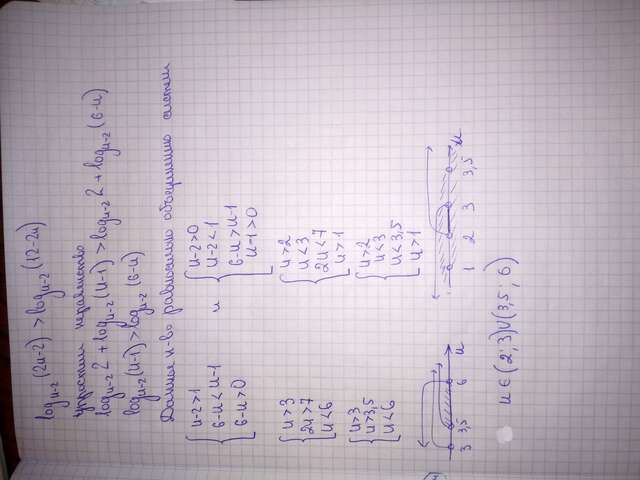 log_{u-2}(2u-2) > log_{u-2}(12-2u)
Упростим неравенство
log_{u-2} 2 + log_{u-2}(u-1) > log_{u-2} 2 + log_{u-2}(6-u)
log_{u-2}(u-1) > log_{u-2}(6-u)
Данное н-во равносильно объединению систем
{ u-2>1 и { u-2>0
6-u<u-1 u-2<1
6-u>0 6-u>u-1
u-1>0
{ u>3 { u>2
2u>7 u<3
u<6 2u<7
u>1
{ u>3 { u>2
u>3,5 u<3
u<6 u<3,5
u>1
3 3,5 6 u 1 2 3 3,5 u
u∈(2;3)∪(3,5;6)